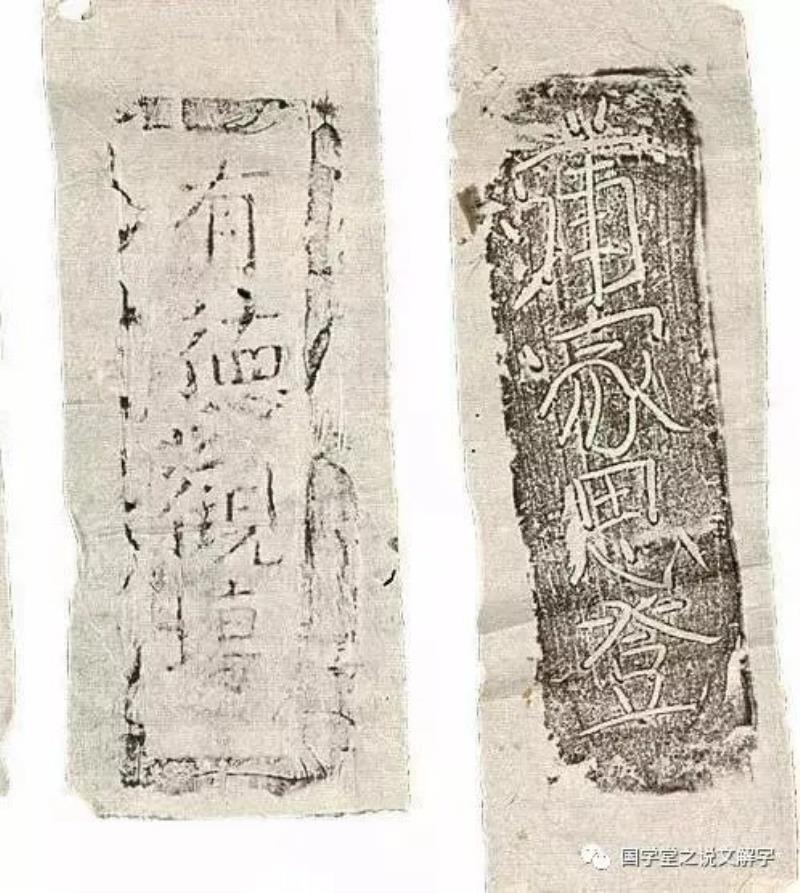 蒲家思登
有德觀
国学堂之说文解字